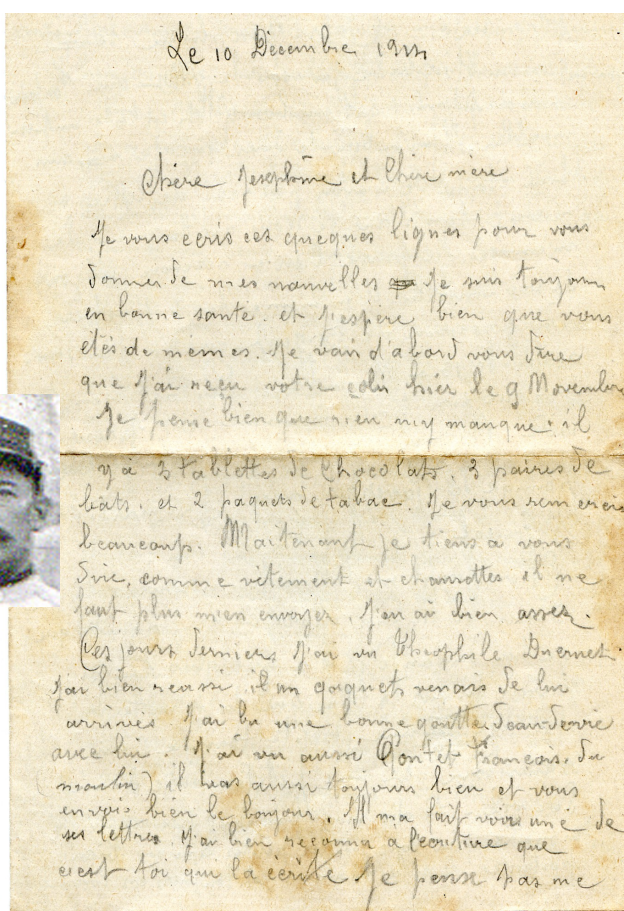 Le 10 Décembre 1914
Chère Josephine et Chère mère
Je vous ecris ces queques lignes pour vous
donner de mes nouvelles Je suis toujours
en bonne sante. et J'espère bien que vous
etes de mêmes. Je vais d'abord vous dire
que J'ai reçu votre colis hier le 9 Novembre
Je pense bien que rien my manque. il
y à 3 tablettes de Chocolats. 3 paires de
bâts. et 2 paquets de tabac. Je vous remercis
beaucoup. Maitenant je tiens a vous
dire, comme vêtement et chaussettes il ne
faut plus m'en envoyez, J'en ai bien assez.
Ces jours derniers J'ai vu Théophile
J'ai bien reussi il un paquets venais de lui
arrivés J'ai bu une bonne goutte deau-de-vie
avec lui. J'ai vu aussi Pontet François. du
(moulin) il vas aussi toujours bien et vous
envois bien le bonjour. Il ma fait voir une de
ses lettres J'ai bien reconnu a l'ecriture que
c'est toi qui la écrite Je pense pas me